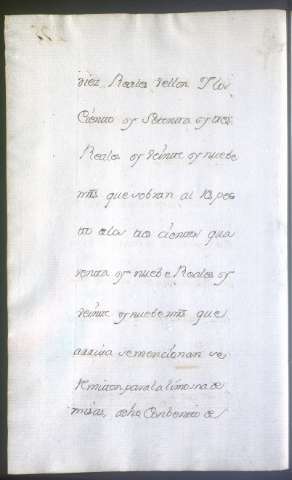 diez Reales Vellon Y los
Ciento y Setenta y tres
Reales y veinte y nuebe
mrs que sobran al Res pec
to de los tres cientos qua
renta y nuebe Reales y
veinte y nuebe mrs que
arriva se mencionan se
Remiten para la limosna de
misas, a dho Conbento de